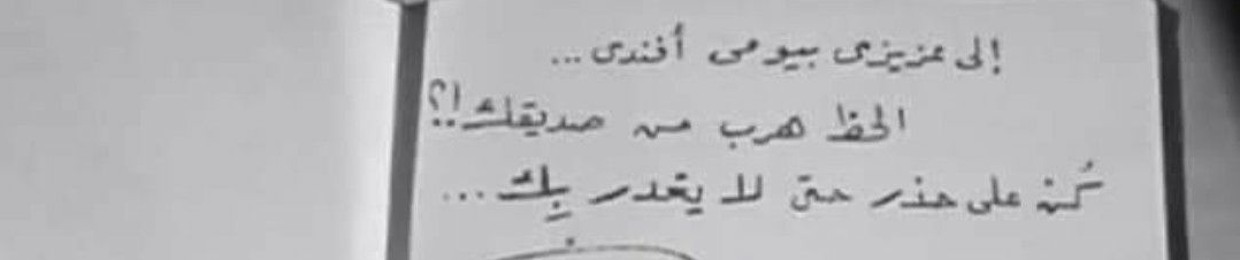 إلى عزيزى بيومى أفندى...
الحظ هرب من صديقك!؟
كُن على حذر حتى لا يغدر بِك...